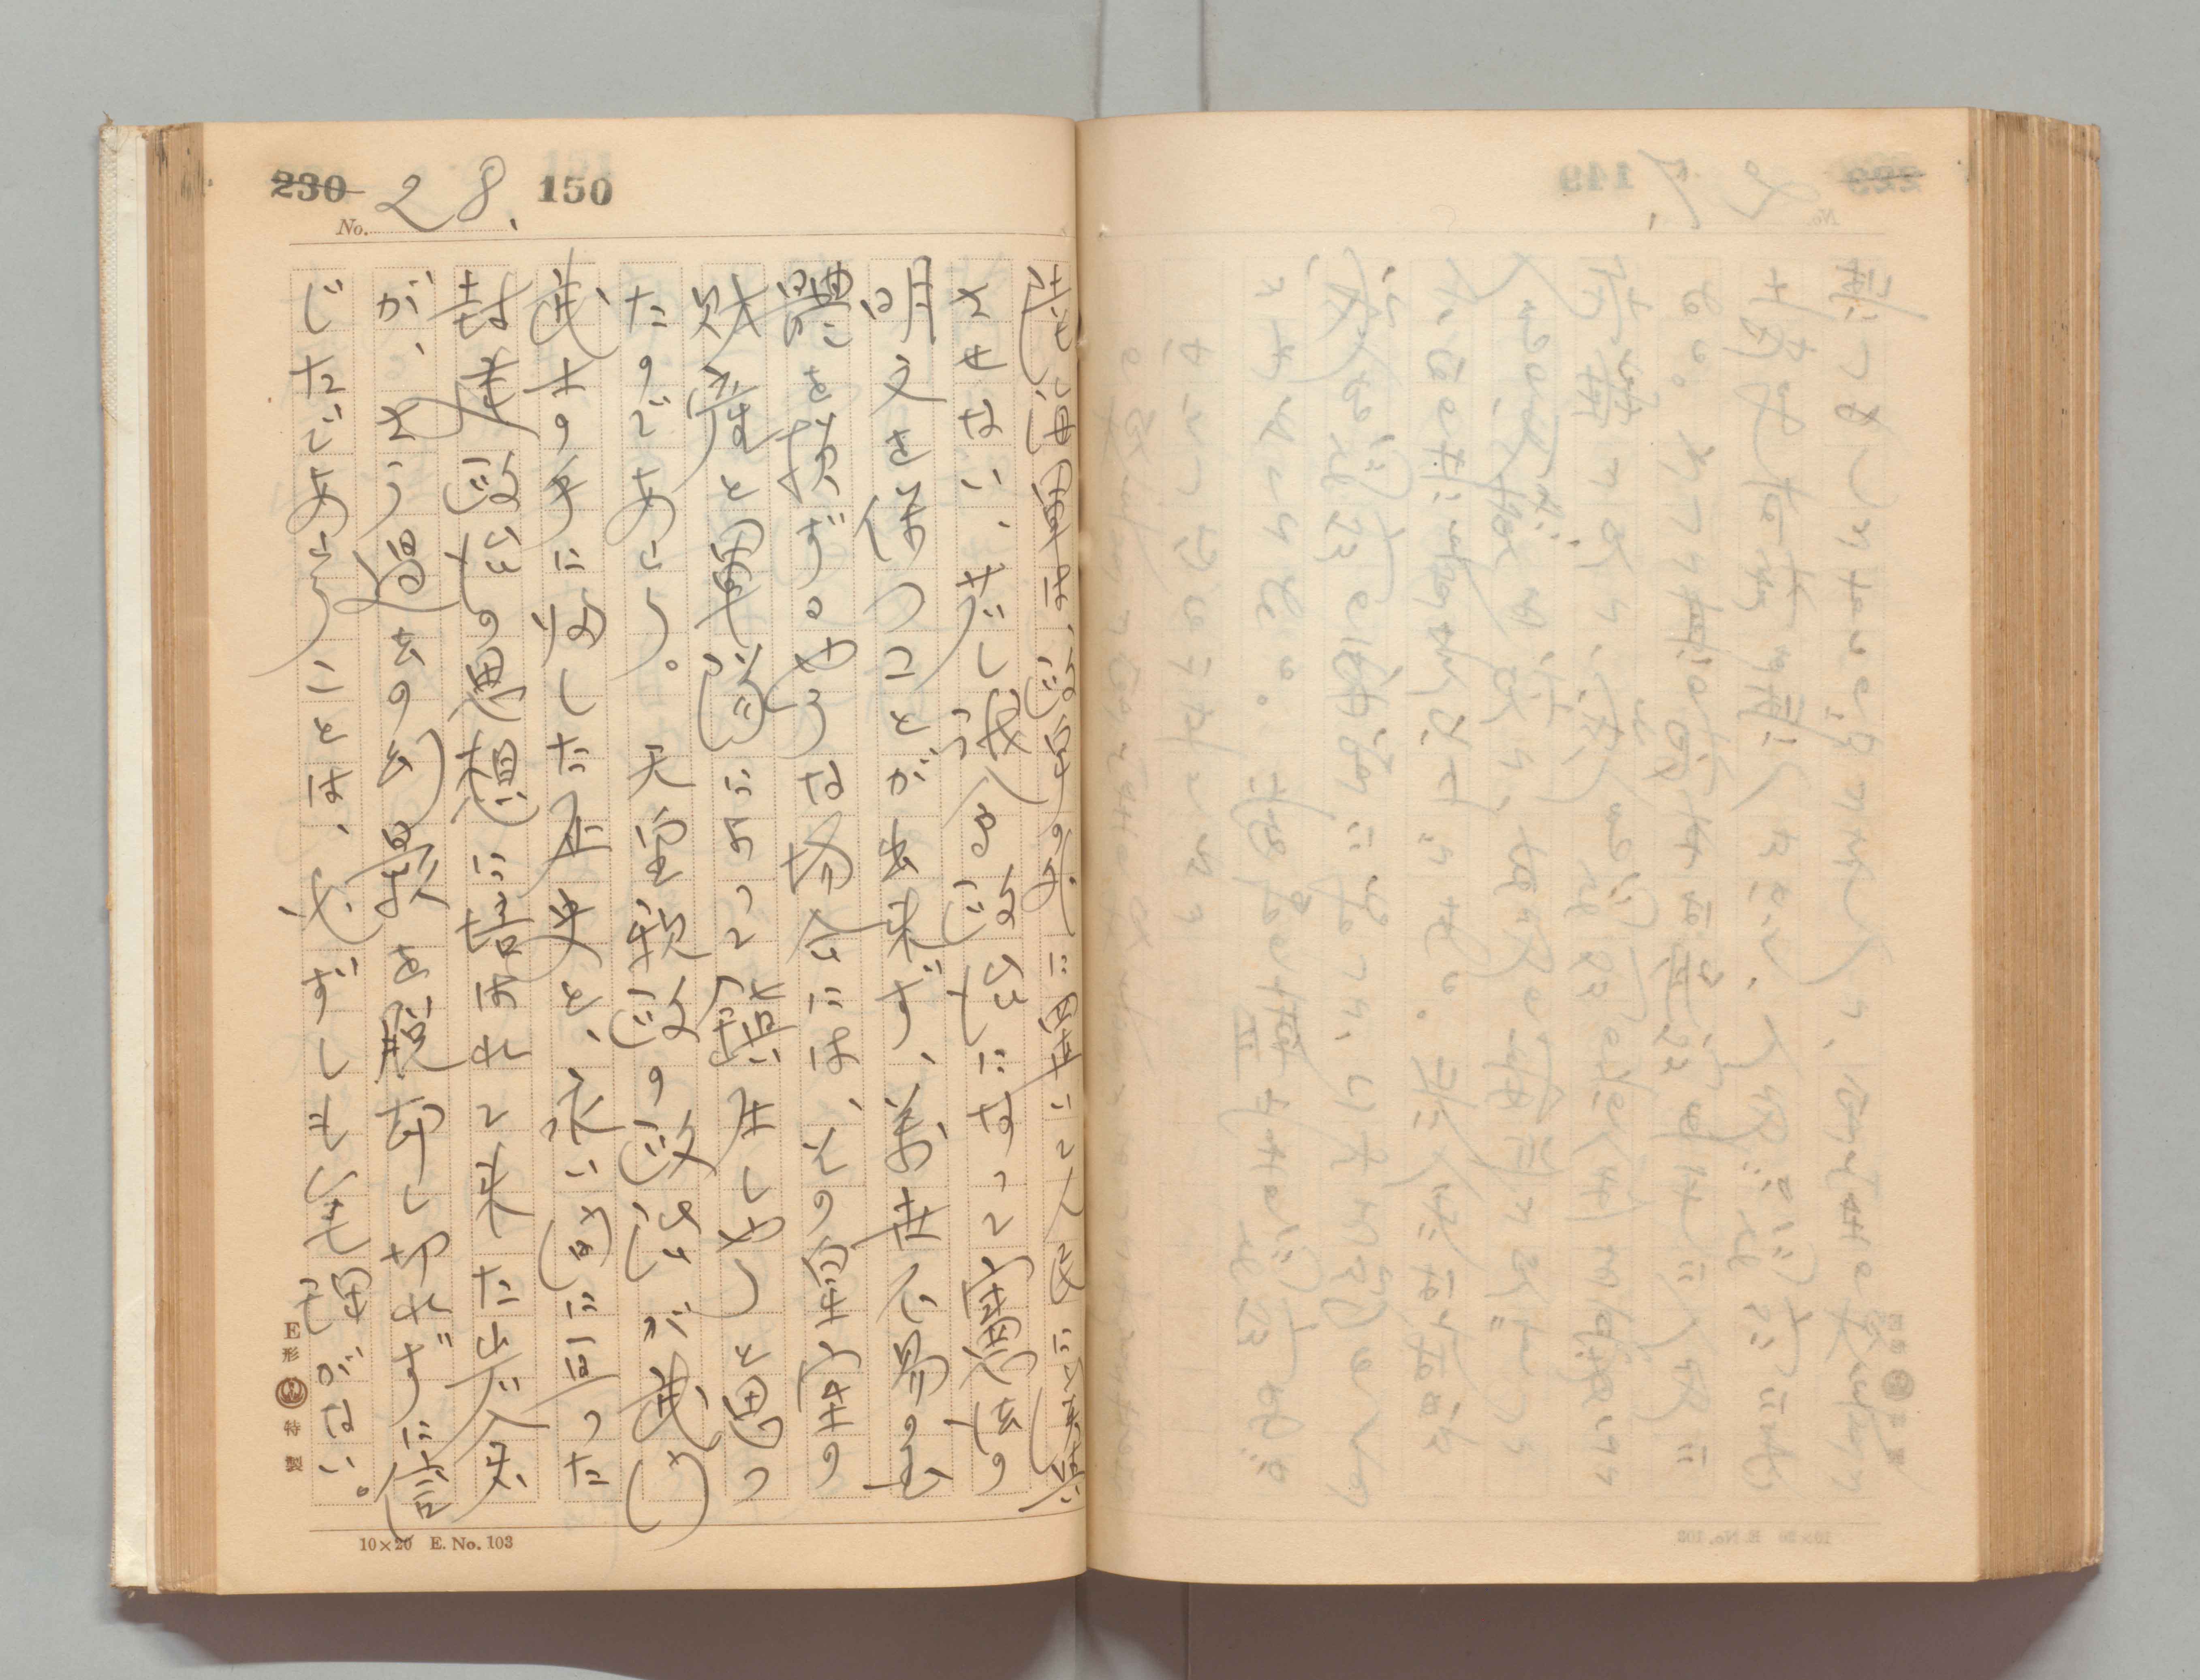 230 150
No. 28.
陸海軍は、政争の外に置いて人民に迷惑
させない、若し誤れる政治になって憲法の
明文を保つことが出来ず、萬世不易の国
體を損ずるやうな場合には、その皇室の
財産と軍隊によって鎮圧しやうと思つ
たのであらう。 天皇親政の政治が武門
武士の手に帰した歴史と、永い間に亘つた
封建政治の思想に培はれて来た岩倉
が、さう過去の幻影を脱却し切れずに信
じたであらうことは、必ずしも無理がない。
E形 特製
10×20 E. No. 103